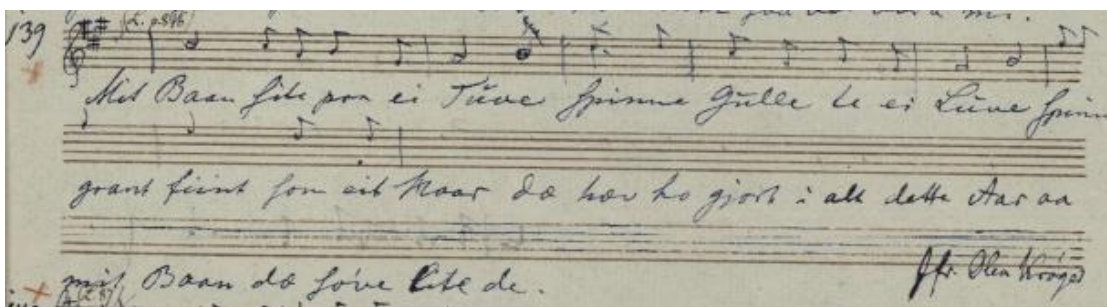 139 (L. p. 896)
Mit Baan site paa ei Tuve spinne Gulle te ei Luve spinn
grant fiint som eit Haar dæ hæv ho gjort i alt dette Aar aa
mit Baan dæ søve lite de.
Jfr. Olea Krøger